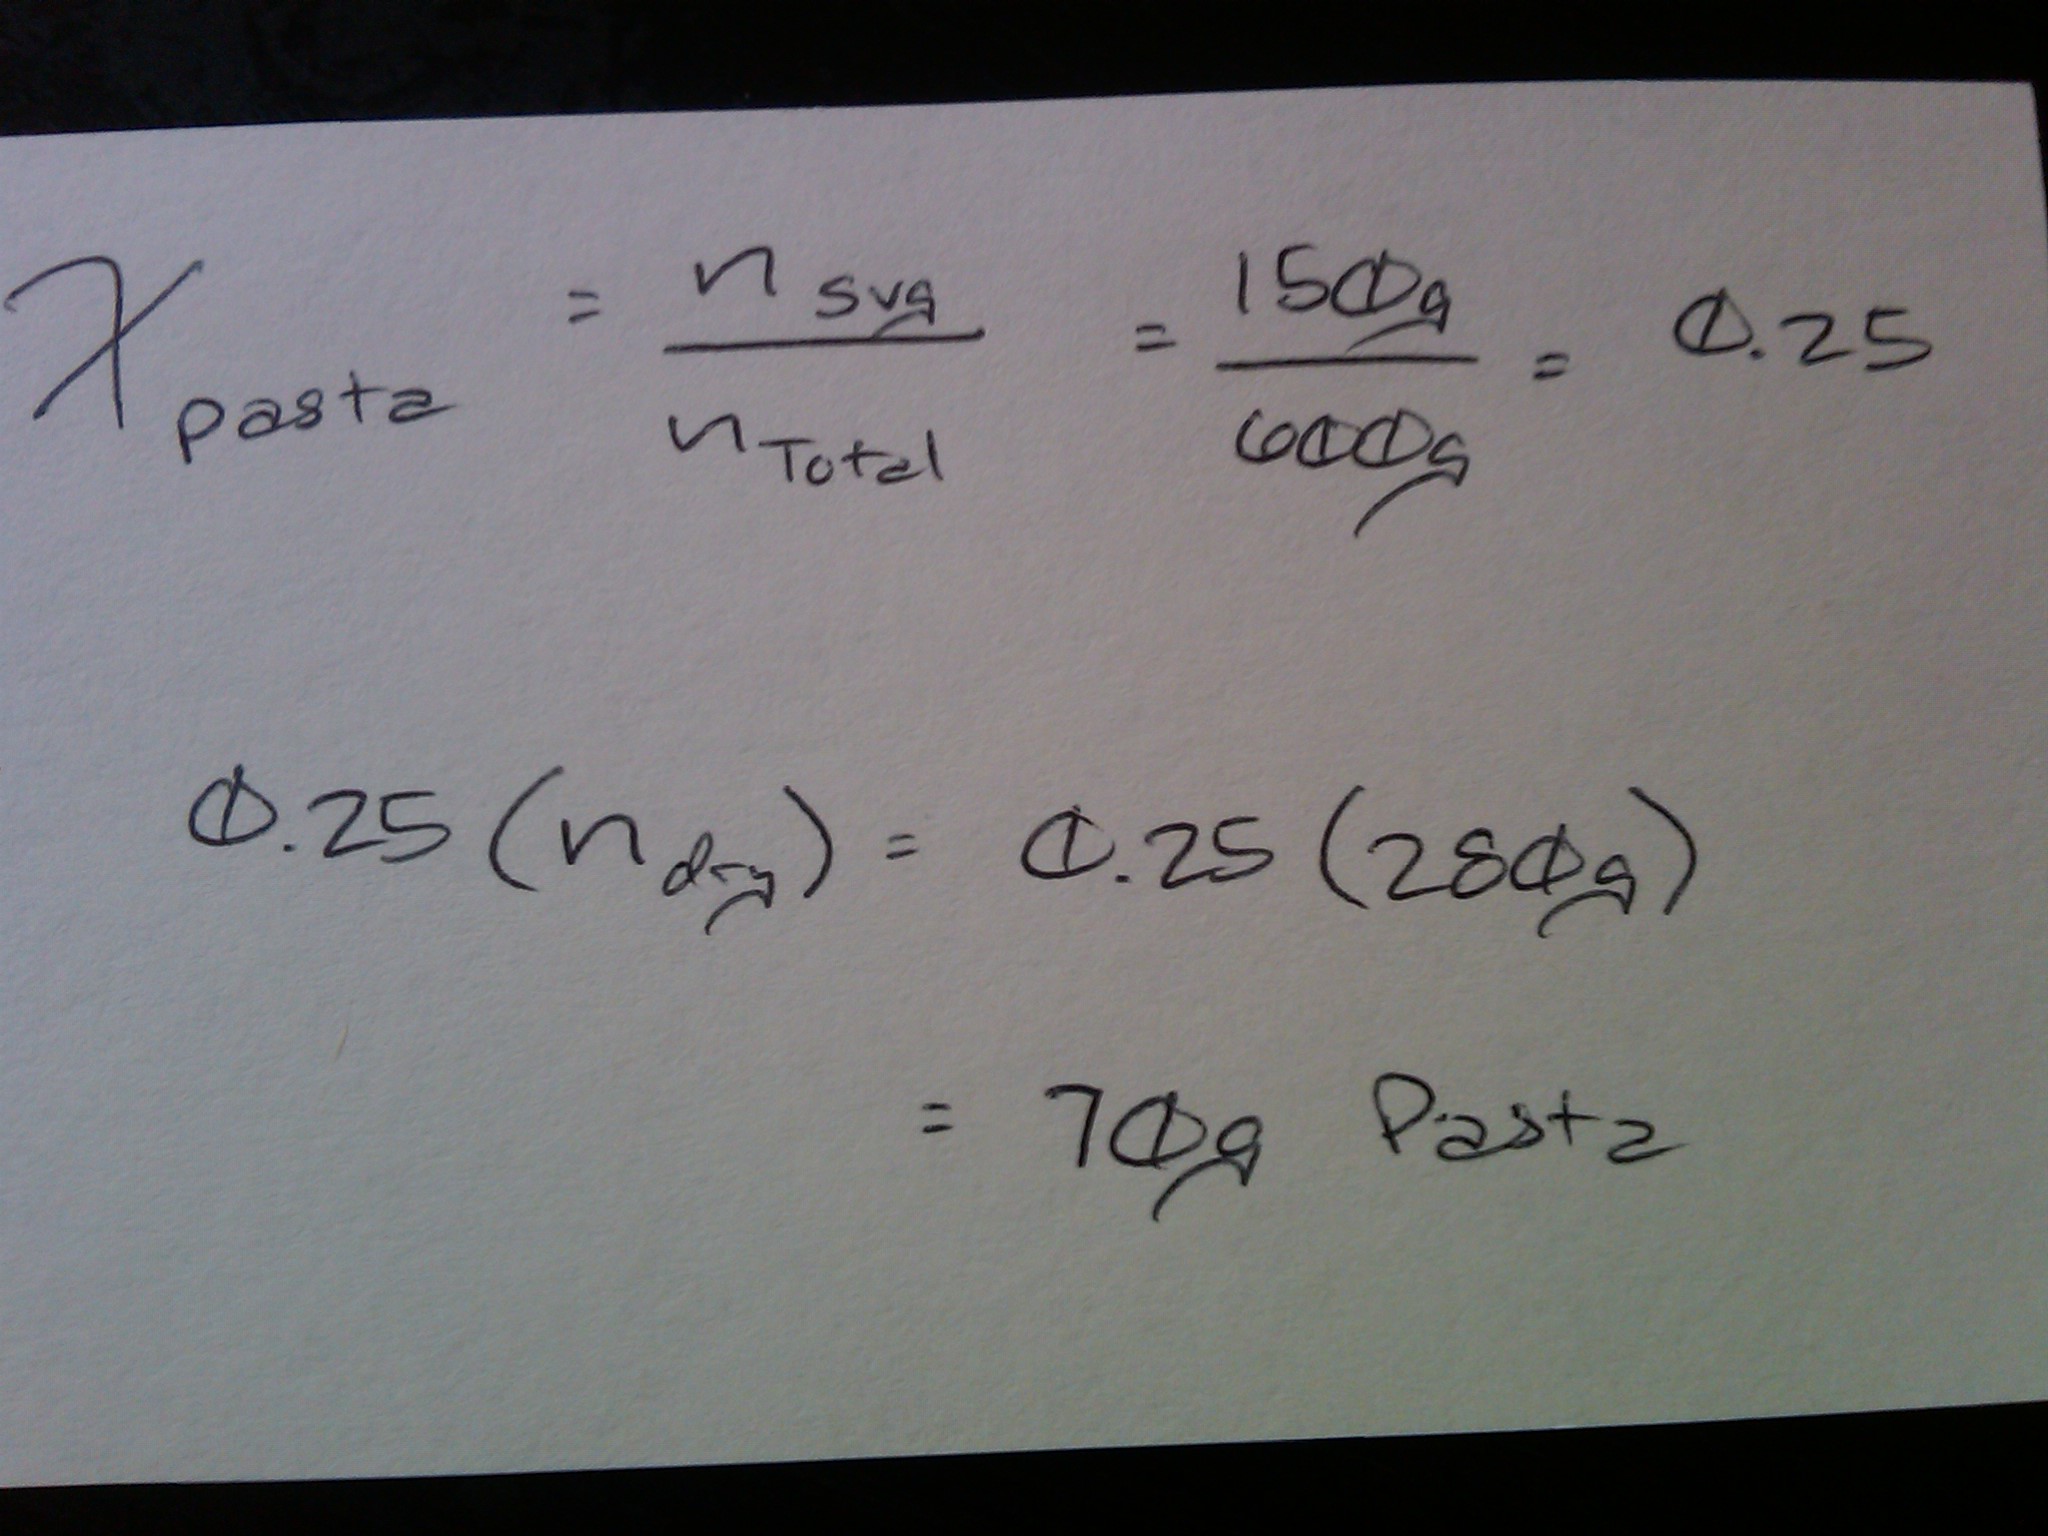 χ pasta = n svg / n Total = 150g / 600g = 0.25
0.25 (n dry) = 0.25 (280g)
= 70g Pasta